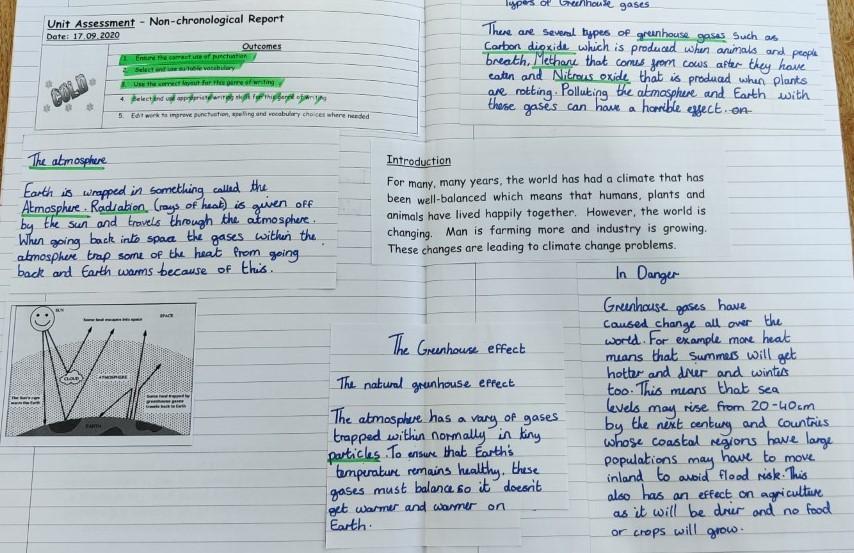 Unit Assessment - Non-chronological Report
Date: 17.09.2020
Outcomes
1. Ensure the correct use of punctuation
2. Select and use suitable vocabulary
3. Use the correct layout for this genre of writing
4. Select and use appropriate writing skills for this genre of writing
5. Edit work to improve punctuation, spelling and vocabulary choices where needed
COLD
The atmosphere
Earth is wrapped in something called the
Atmosphere. Radiation (rays of heat) is given off
by the sun and travels through the atmosphere.
When going back into space the gases within the
atmosphere trap some of the heat from going
back and Earth warms because of this.
SUN
Some heat escapes into space
SPACE
CLOUD
ATMOSPHERE
The Sun's rays
warm the Earth
Some heat trapped by
greenhouse gases
travels back to Earth
EARTH
Types of Greenhouse gases
There are several types of greenhouse gases such as
Carbon dioxide which is produced when animals and people
breath, Methane that comes from cows after they have
eaten and Nitrous oxide that is produced when plants
are rotting. Polluting the atmosphere and Earth with
these gases can have a horrible effect. on
Introduction
For many, many years, the world has had a climate that has
been well-balanced which means that humans, plants and
animals have lived happily together. However, the world is
changing. Man is farming more and industry is growing.
These changes are leading to climate change problems.
The Greenhouse effect
The natural greenhouse effect
The atmosphere has a vary of gases
trapped within normally in tiny
particles. To ensure that Earth's
temperature remains healthy, these
gases must balance so it doesn't
get warmer and warmer on
Earth.
In Danger
Greenhouse gases have
caused change all over the
world. For example more heat
means that summers will get
hotter and drier and winters
too. This means that sea
levels may rise from 20-40cm
by the next century and countries
whose coastal regions have large
populations may have to move
inland to avoid flood risk. This
also has an effect on agriculture
as it will be drier and no food
or crops will grow.